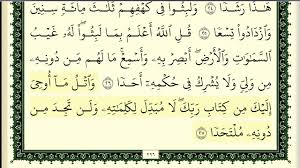 هَٰذَا رَشَدًا ٢٤ وَلَبِثُوا۟ فِى كَهْفِهِمْ ثَلَٰثَ مِا۟ئَةٍ سِنِينَ
وَٱزْدَادُوا۟ تِسْعًا ٢٥ قُلِ ٱللَّهُ أَعْلَمُ بِمَا لَبِثُوا۟ لَهُۥ غَيْبُ
ٱلسَّمَٰوَٰتِ وَٱلْأَرْضِ أَبْصِرْ بِهِۦ وَأَسْمِعْ مَا لَهُم مِّن دُونِهِۦ
مِن وَلِىٍّ وَلَا يُشْرِكُ فِى حُكْمِهِۦٓ أَحَدًا ٢٦ وَٱتْلُ مَآ أُوحِىَ
إِلَيْكَ مِن كِتَابِ رَبِّكَ لَا مُبَدِّلَ لِكَلِمَٰتِهِۦ وَلَن تَجِدَ مِن
دُونِهِۦ مُلْتَحَدًا ٢٧